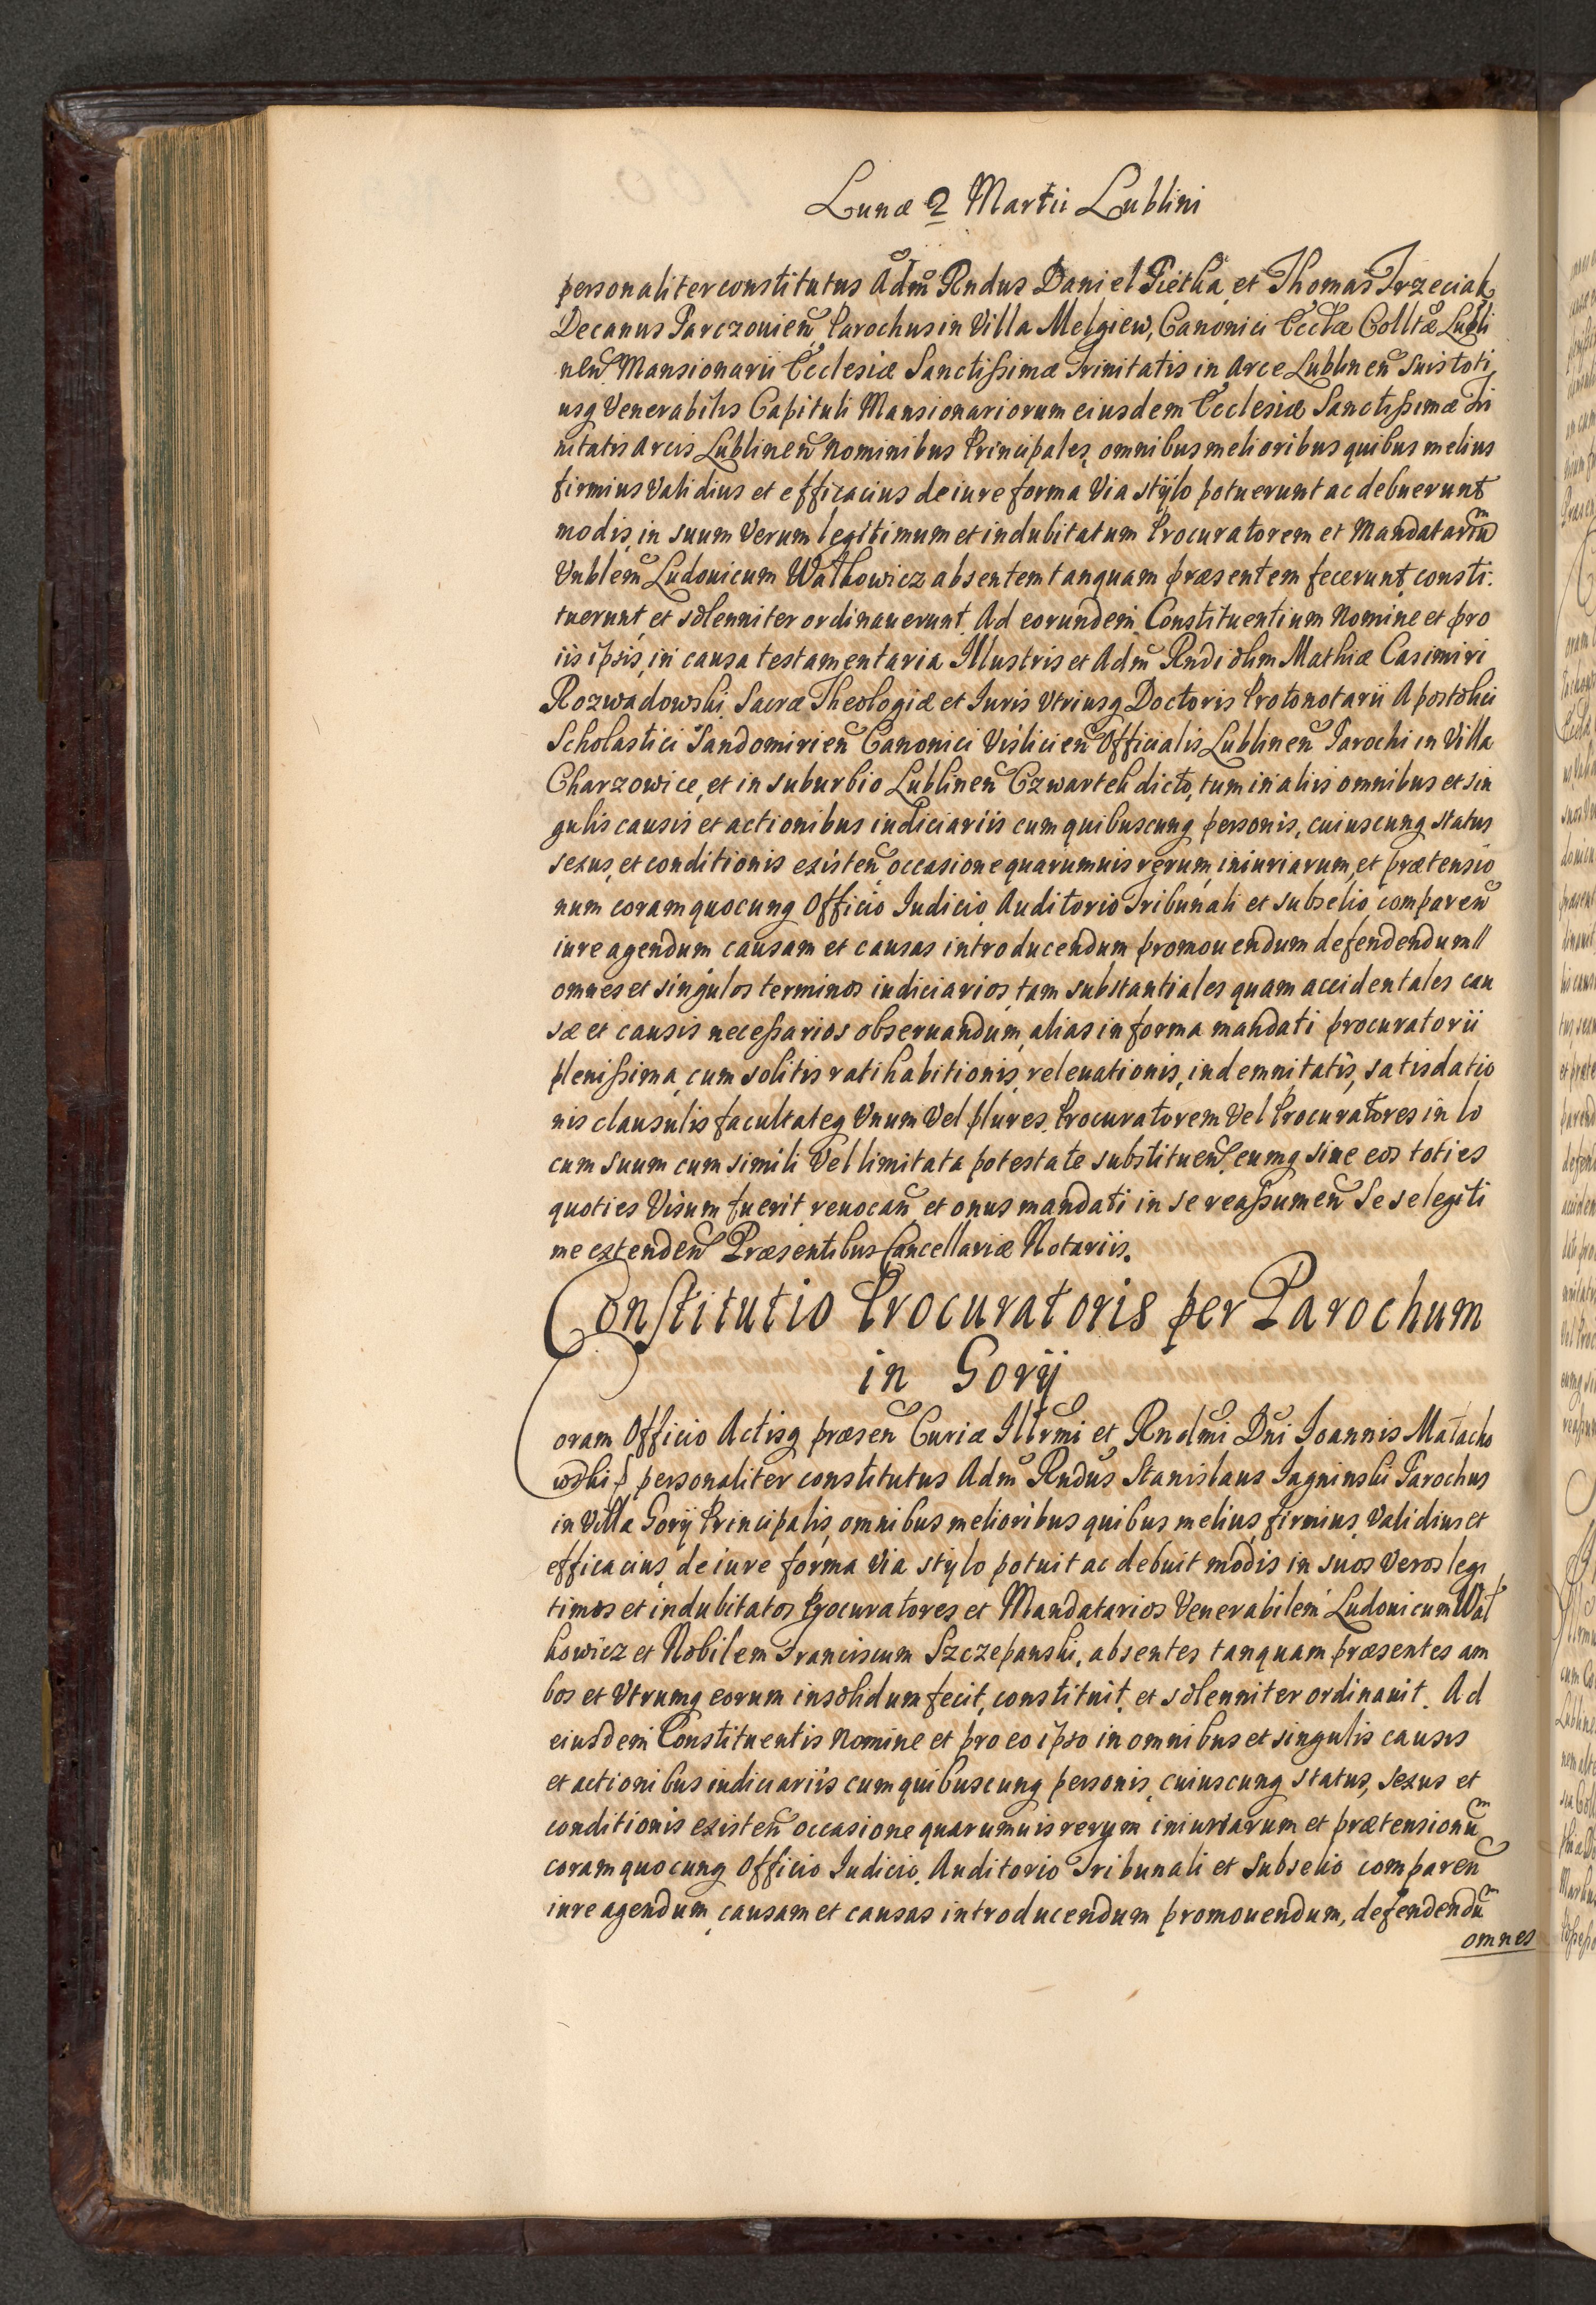 Lunæ 2 Martii Lublini
personaliter constitutus Adm̃ Rndus Daniel Pietka, et Thomas Trzeciak
Decanus Parczouien̄, Parochus in Villa Melgiew, Canonici Eccłæ Colltæ Lubli
nen̄ Mansionarii Ecclesiæ Sanctißimæ Trinitatis in Arce Lublinen̄ Suis toti
usq Venerabilis Capituli Mansionariorum eiusdem Ecclesiæ Sanctißimæ Tri
nitatis Arcis Lublinen̄ Nominibus Principales, omnibus melioribus quibus melius
firmius Validius et efficacius de iure forma Via stÿlo potuerunt ac debuerunt
modis, in suum Verum legitimum et indubitatum Procuratorem et Mandatariũ
Vnblem̃ Ludouicum Watkowicz absentem tanquam præsentem fecerunt, consti:
tuerunt, et solenniter ordinauerunt. Ad eorundem Constituentium Nomine et pro
iis ipsis, in causa testamentaria Illustris et Adm̃ Rndi olim Mathiæ Casimiri
Rozwadowski, Sacræ Theologiæ et Iuris Vtriusq Doctoris Protonotarii Apostolici
Scholastici Sandomirien̄ Canonici Vislicien̄ Officialis Lublinen̄ Parochi in Villa
Charzowice, et in suburbio Lublinen̄ Czwartek dicto, tum in aliis omnibus et sin
gulis causis et actionibus iudiciariis cum quibuscunq personis, cuiuscunq status
sexus, et conditionis existen̄ occasione quarumuis rerum, iniuriarum, et prætensio
num coram quocunq Officio Iudicio Auditorio Tribunali et subselio comparen̄
iure agendum causam et causas introducendum promouendum defendendum//
omnes et singulos terminos iudiciarios, tam substantiales quam accidentales cau
sæ et causis neceßarios obseruandum, alias in forma mandati procuratorii
plenißima, cum solitis ratihabitionis, releuationis, indemnitatis, satisdatio
nis clausulis facultateq Vnum Vel plures, Procuratorem Vel Procuratores in lo
cum suum cum simili Vel limitata potestate substituen̄, eumq siue eos toties
quoties Visum fuerit reuocan̄ et onus mandati in se reaßumen̄ Se se legiti
me extenden̄ Præsentibus Cancellariæ Notariis.
Constitutio Procuratoris per Parochum
in Gorÿ
Coram Officio Actisq præsen̄ Curiæ Illrmi et Rndmi Dni Ioannis Małacho
wski p personaliter constitutus Adm̃ Rndus Stanislaus Jagninski Parochus
in Villa Gorÿ Principalis, omnibus melioribus quibus melius, firmius, Validius et
efficacius, de iure forma Via stÿlo potuit ac debuit modis in suos Veros legi
timos et indubitatos Procuratores et Mandatarios Venerabilem Ludouicum Wat
kowicz et Nobilem Franciscum Szczepanski, absentes tanquam præsentes am
bos et Vtrumq eorum insolidum fecit, constituit, et solenniter ordinauit. Ad
eiusdem Constituentis Nomine et pro eo ipso in omnibus et singulis causis
et actionibus iudiciariis cum quibuscunq personis, cuiuscunq status, sexus et
conditionis existen̄ occasione quarumuis rerum iniuriarum et prætensionũ
coram quocunq Officio Iudicio, Auditorio Tribunali et Subselio comparen̄
iure agendum causam et causas introducendum promouendum, defendendũ
omnes